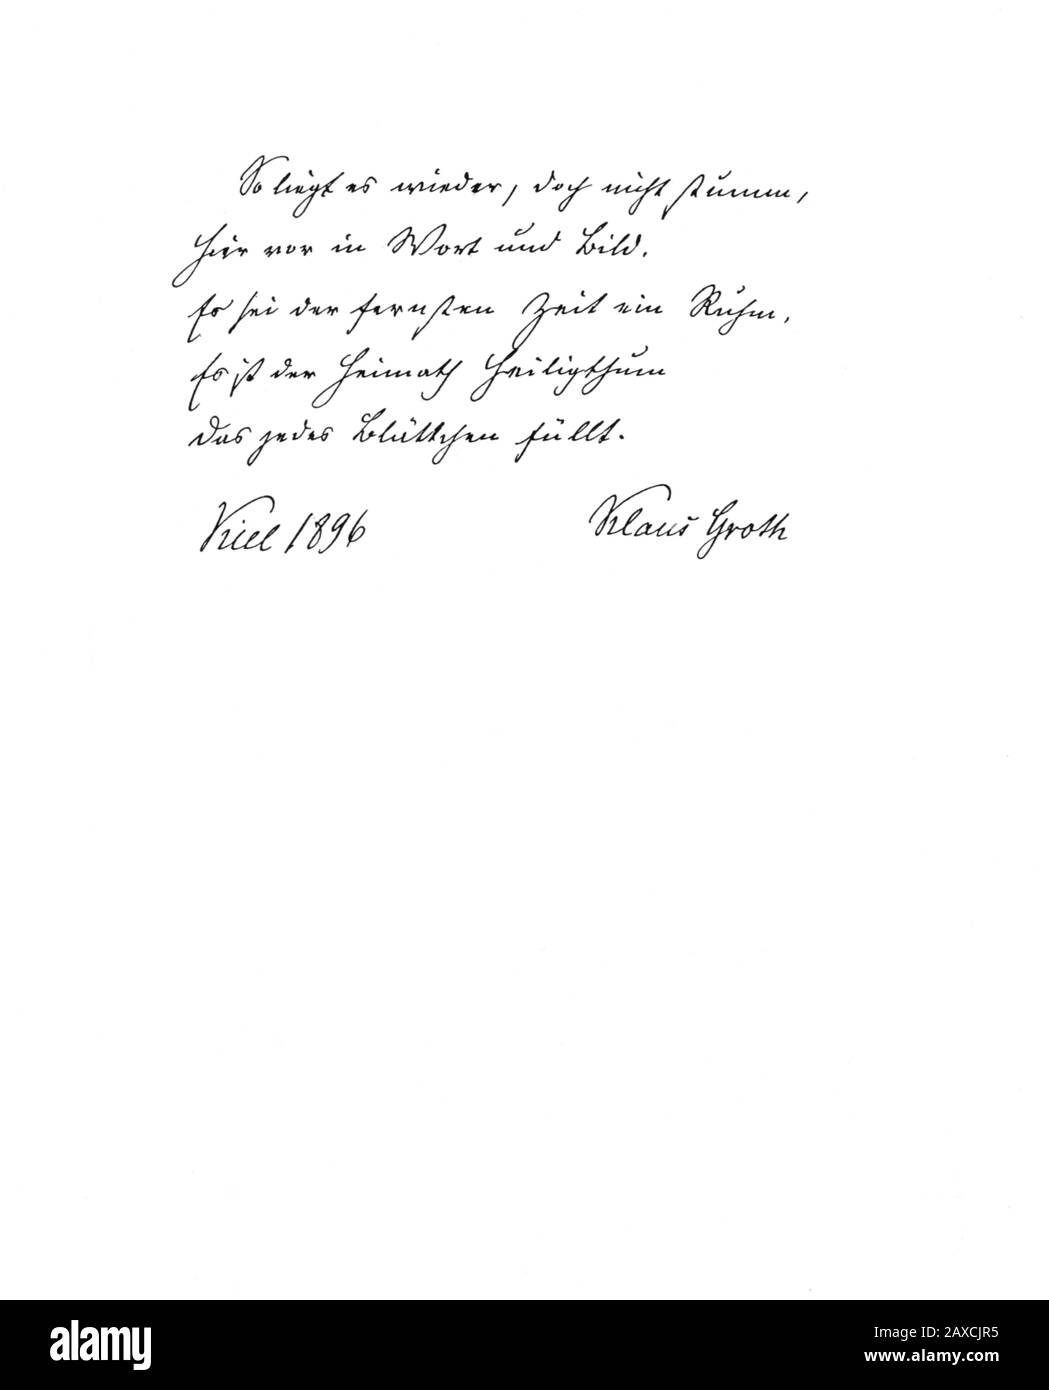 So liegt es wieder, doch nicht stumm,
Hier vor in Wort und Bild.
Es sei der fernsten Zeit ein Ruhm,
Es ist der Heimath Heiligthum
Das jedes Blättchen füllt.
Kiel 1896 Klaus Groth
alamy
Image ID: 2AXCJR5
www.alamy.com